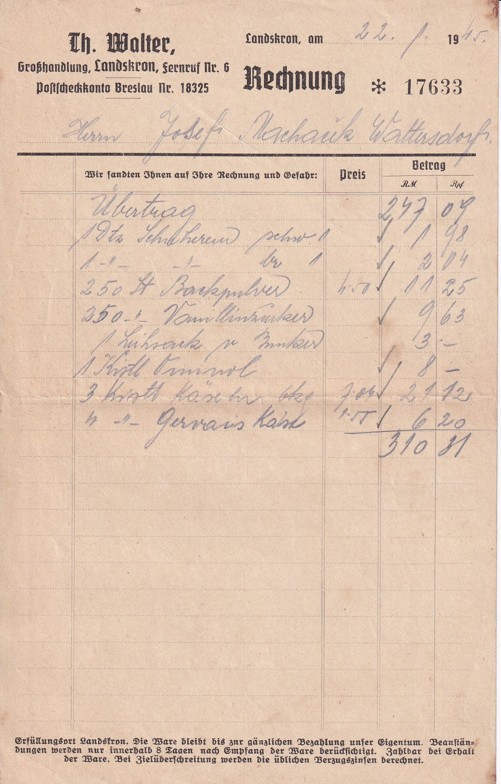 Th. Walter,
Großhandlung, Landskron, Fernruf Nr. 6
Postscheckkonto Breslau Nr. 18325
Landskron, am 22. 1. 1945.
Rechnung * 17633
Herrn Josef Wattersdorf
Wir sandten Ihnen auf Ihre Rechnung und Gefahr: Preis Betrag
RM Rpf
Übertrag 247 09
1 Dtz schw 1 98
1 -"- -"- br 2 04
250 St Backpulver 4.50 11 25
250 -"- Vanillinzucker 9 63
1 Leihsack v. Zucker 3 -
1 Kistl 8 -
3 Kistl Käse 7.04 21 12
4 -"- Gervais Käse 1.55 6 20
310 31
Erfüllungsort Landskron. Die Ware bleibt bis zur gänzlichen Bezahlung unser Eigentum. Beanstän-
dungen werden nur innerhalb 8 Tagen nach Empfang der Ware berücksichtigt. Zahlbar bei Erhalt
der Ware. Bei Zielüberschreitung werden die üblichen Verzugszinsen berechnet.